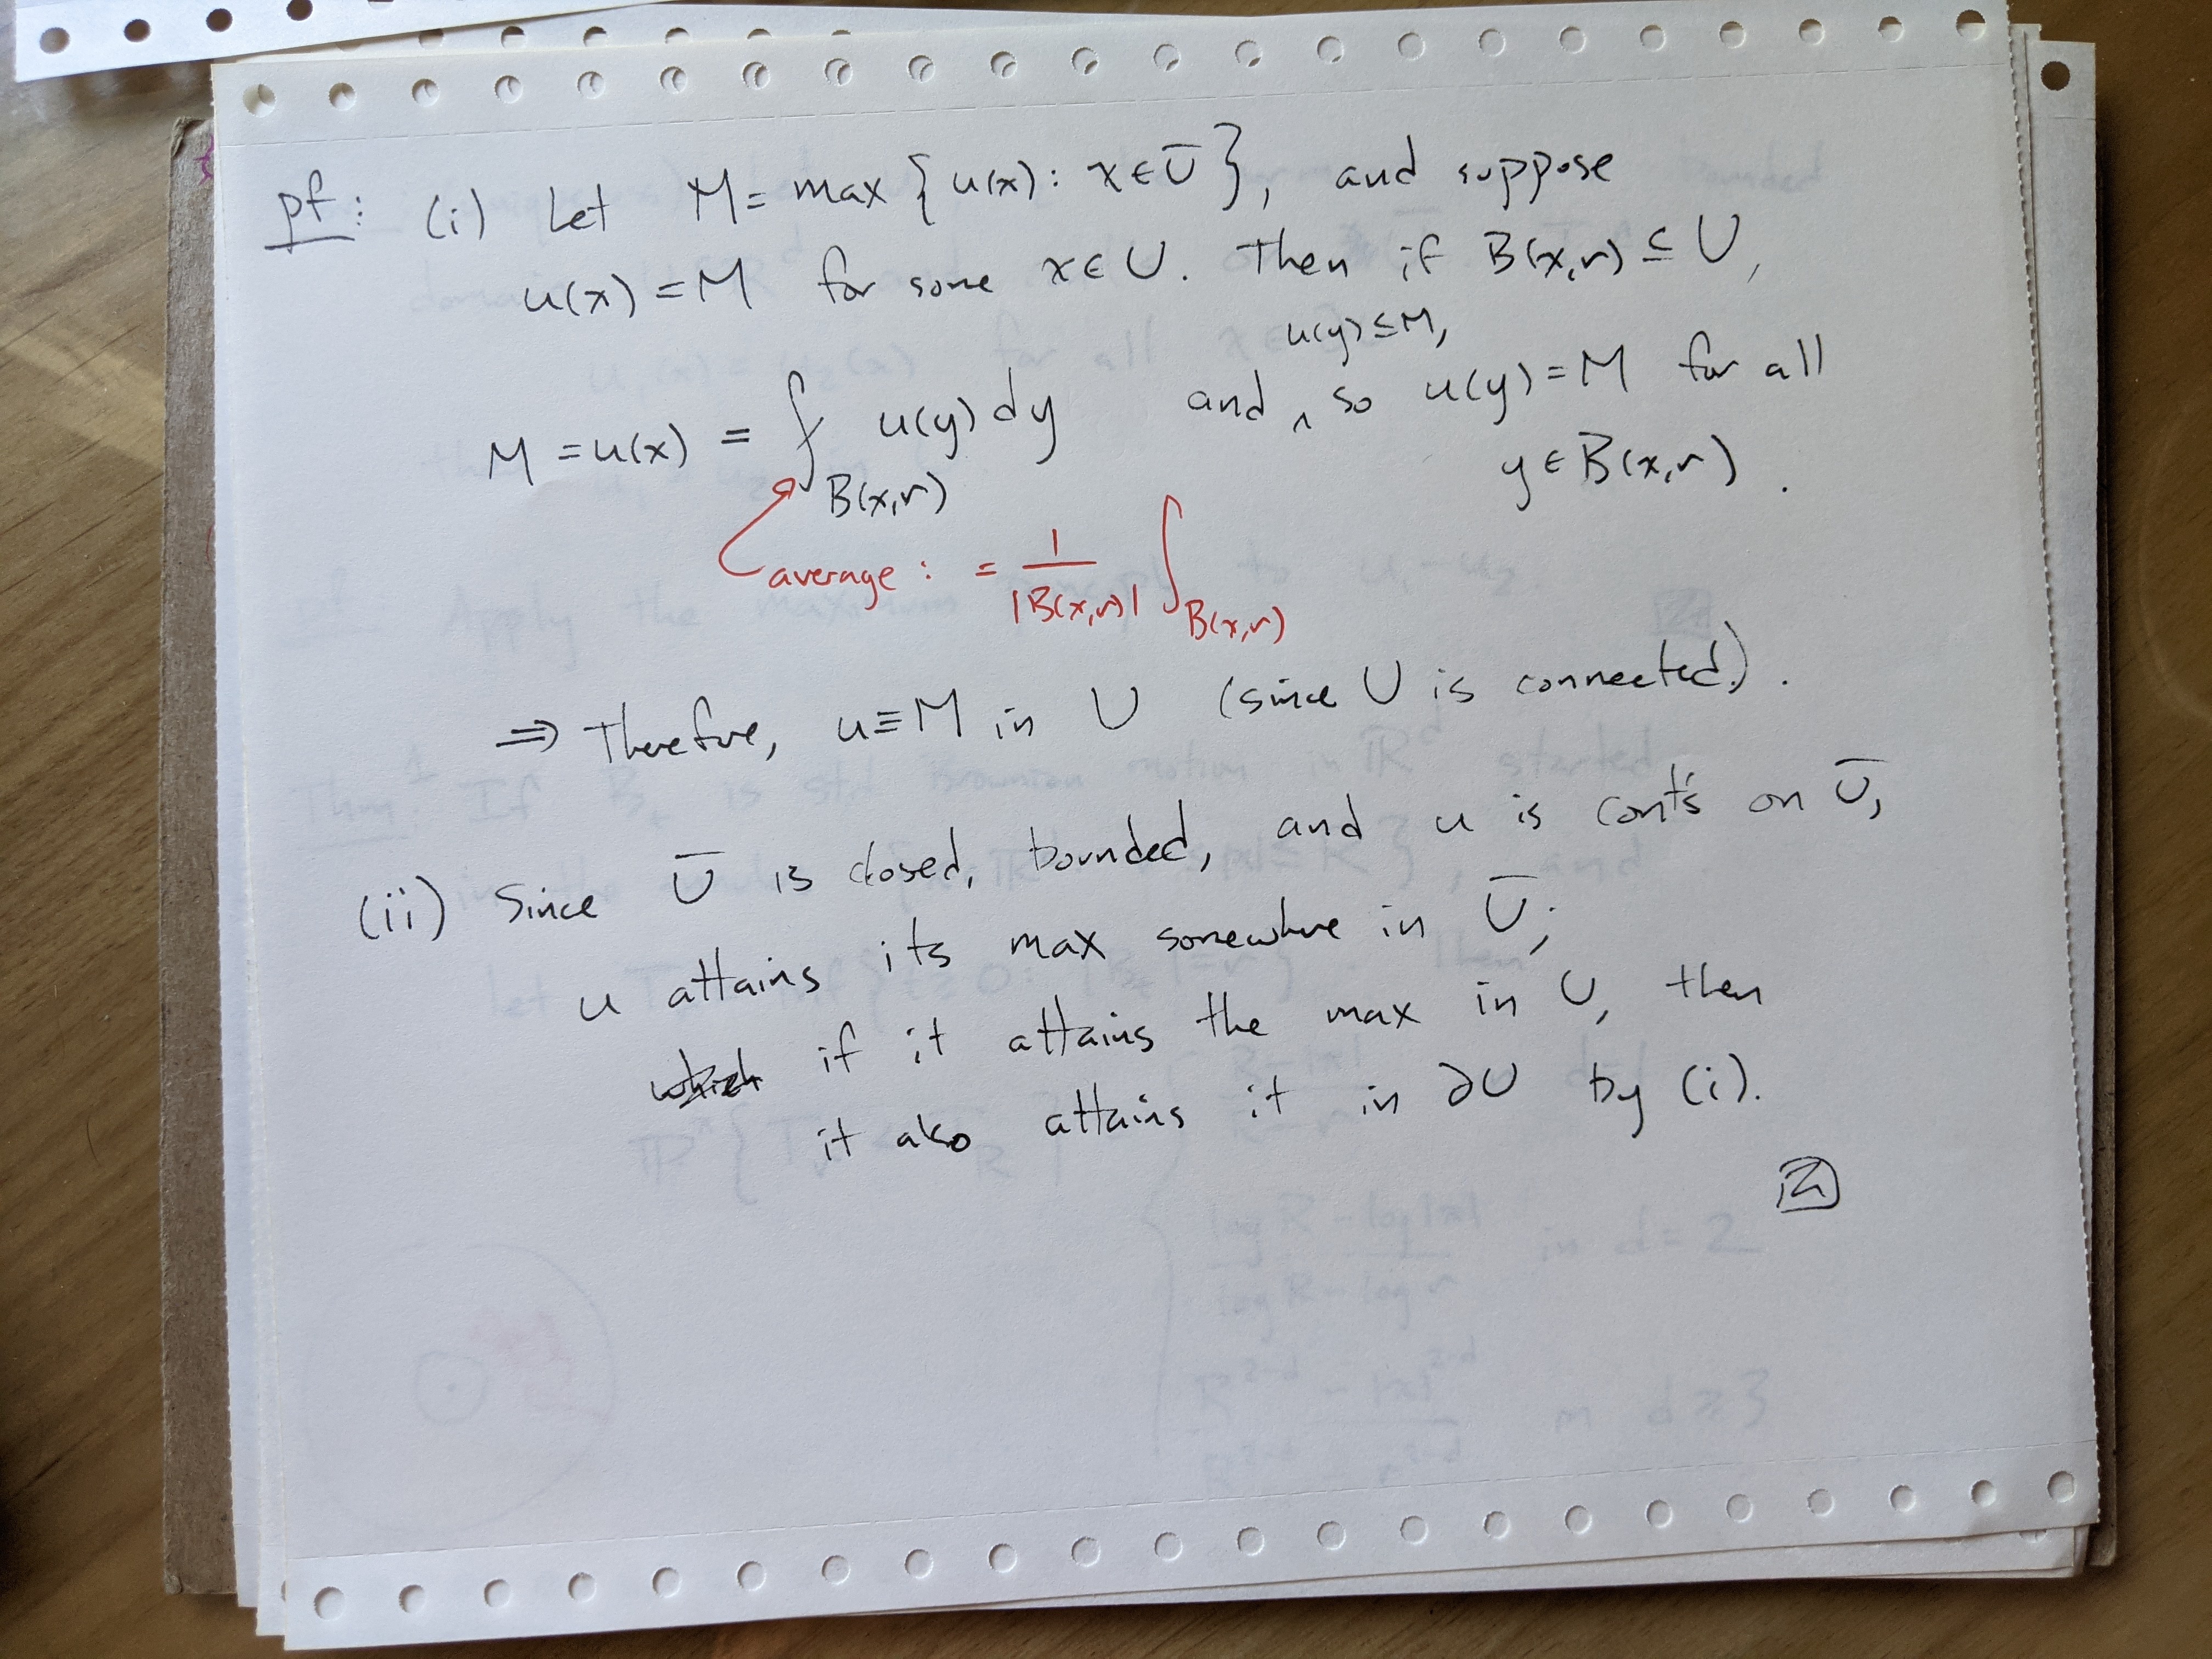 pf: (i) Let M = max { u(x) : x ∈ Ū }, and suppose
u(x) = M for some x ∈ U. Then if B(x,r) ⊆ U,
u(y) ≤ M,
M = u(x) = ⨍ u(y) dy and ‸ so u(y) = M for all
B(x,r) y ∈ B(x,r).
average : = 1/|B(x,r)| ∫ B(x,r)
⇒ Therefore, u ≡ M in U (since U is connected.).
(ii) Since Ū is closed, bounded, and u is cont's on Ū,
u attains its max somewhere in Ū;
which if it attains the max in U, then
it also attains it in ∂U by (i).